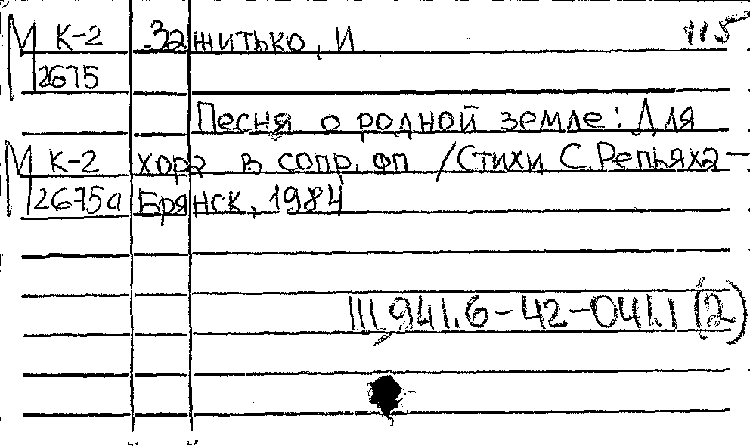 М К-2 Зажитько, И 115
2675
Песня о родной земле: Для
М К-2 хора в сопр. фп /Стихи С. Репьяха —
2675а Брянск, 1984
Щ 941.6-42-041.1 (2)